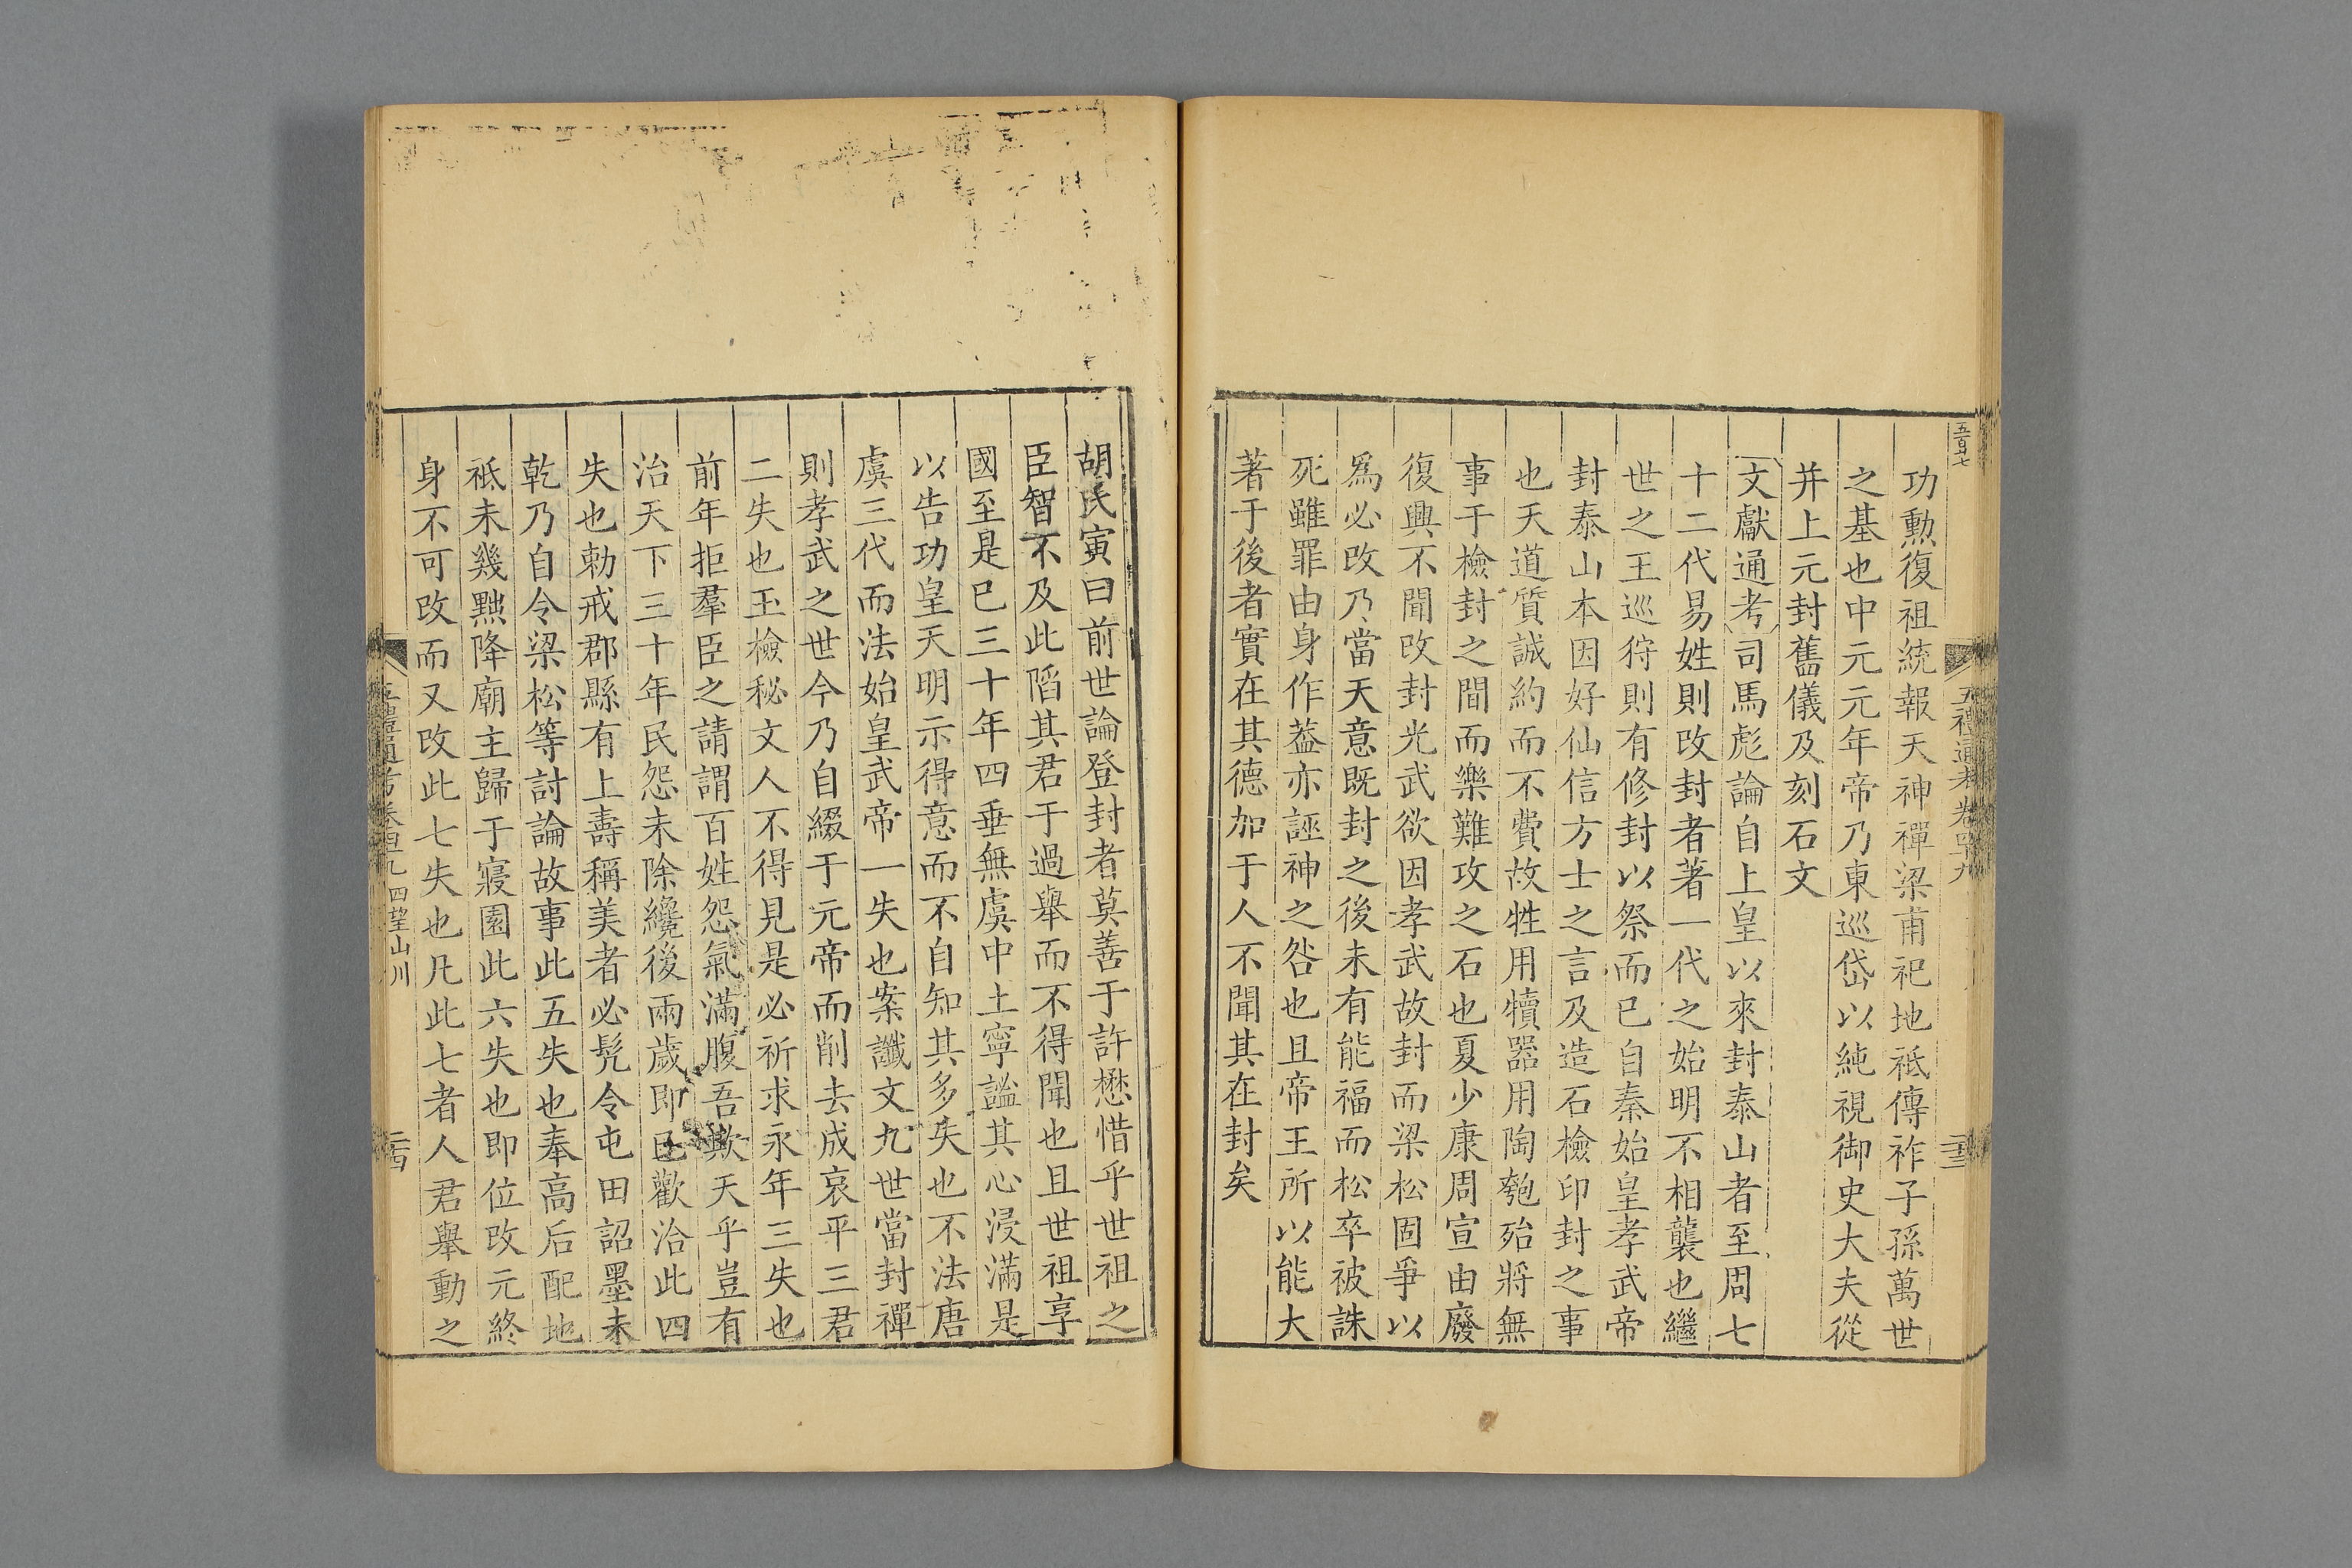 五百七
五禮通考卷四十九
二十三
功勲復祖統報天神禪梁甫祀地祇傳祚子孫萬世
之基也中元元年帝乃東巡岱以純視御史大夫從
并上元封舊儀及刻石文
文獻通考司馬彪論自上皇以來封泰山者至周七
十二代易姓則改封者著一代之始明不相襲也繼
世之王巡狩則有修封以祭而已自秦始皇孝武帝
封泰山本因好仙信方士之言及造石檢印封之事
也天道質誠約而不費故牲用犢器用陶匏殆將無
事于檢封之間而樂難攻之石也夏少康周宣由廢
復興不聞改封光武欲因孝武故封而梁松固爭以
爲必改乃當天意既封之後未有能福而松卒被誅
死雖罪由身作葢亦誣神之咎也且帝王所以能大
著于後者實在其德加于人不聞其在封矣
胡氏寅曰前世論登封者莫善于許懋惜乎世祖之
臣智不及此陷其君于過舉而不得聞也且世祖享
國至是已三十年四垂無虞中土寧謐其心浸滿是
以告功皇天明示得意而不自知其多失也不法唐
虞三代而法始皇武帝一失也案讖文九世當封禪
則孝武之世今乃自綴于元帝而削去成哀平三君
二失也玉檢秘文人不得見是必祈求永年三失也
前年拒羣臣之請謂百姓怨氣滿腹吾欺天乎豈有
治天下三十年民怨未除纔後兩歲即已歡洽此四
失也勅戒郡縣有上壽稱美者必髠令屯田詔墨未
乾乃自令梁松等討論故事此五失也奉高后配地
祇未幾黜降廟主歸于寢園此六失也即位改元終
身不可改而又改此七失也凡此七者人君舉動之
五禮通考卷四十九 四望山川
二十四